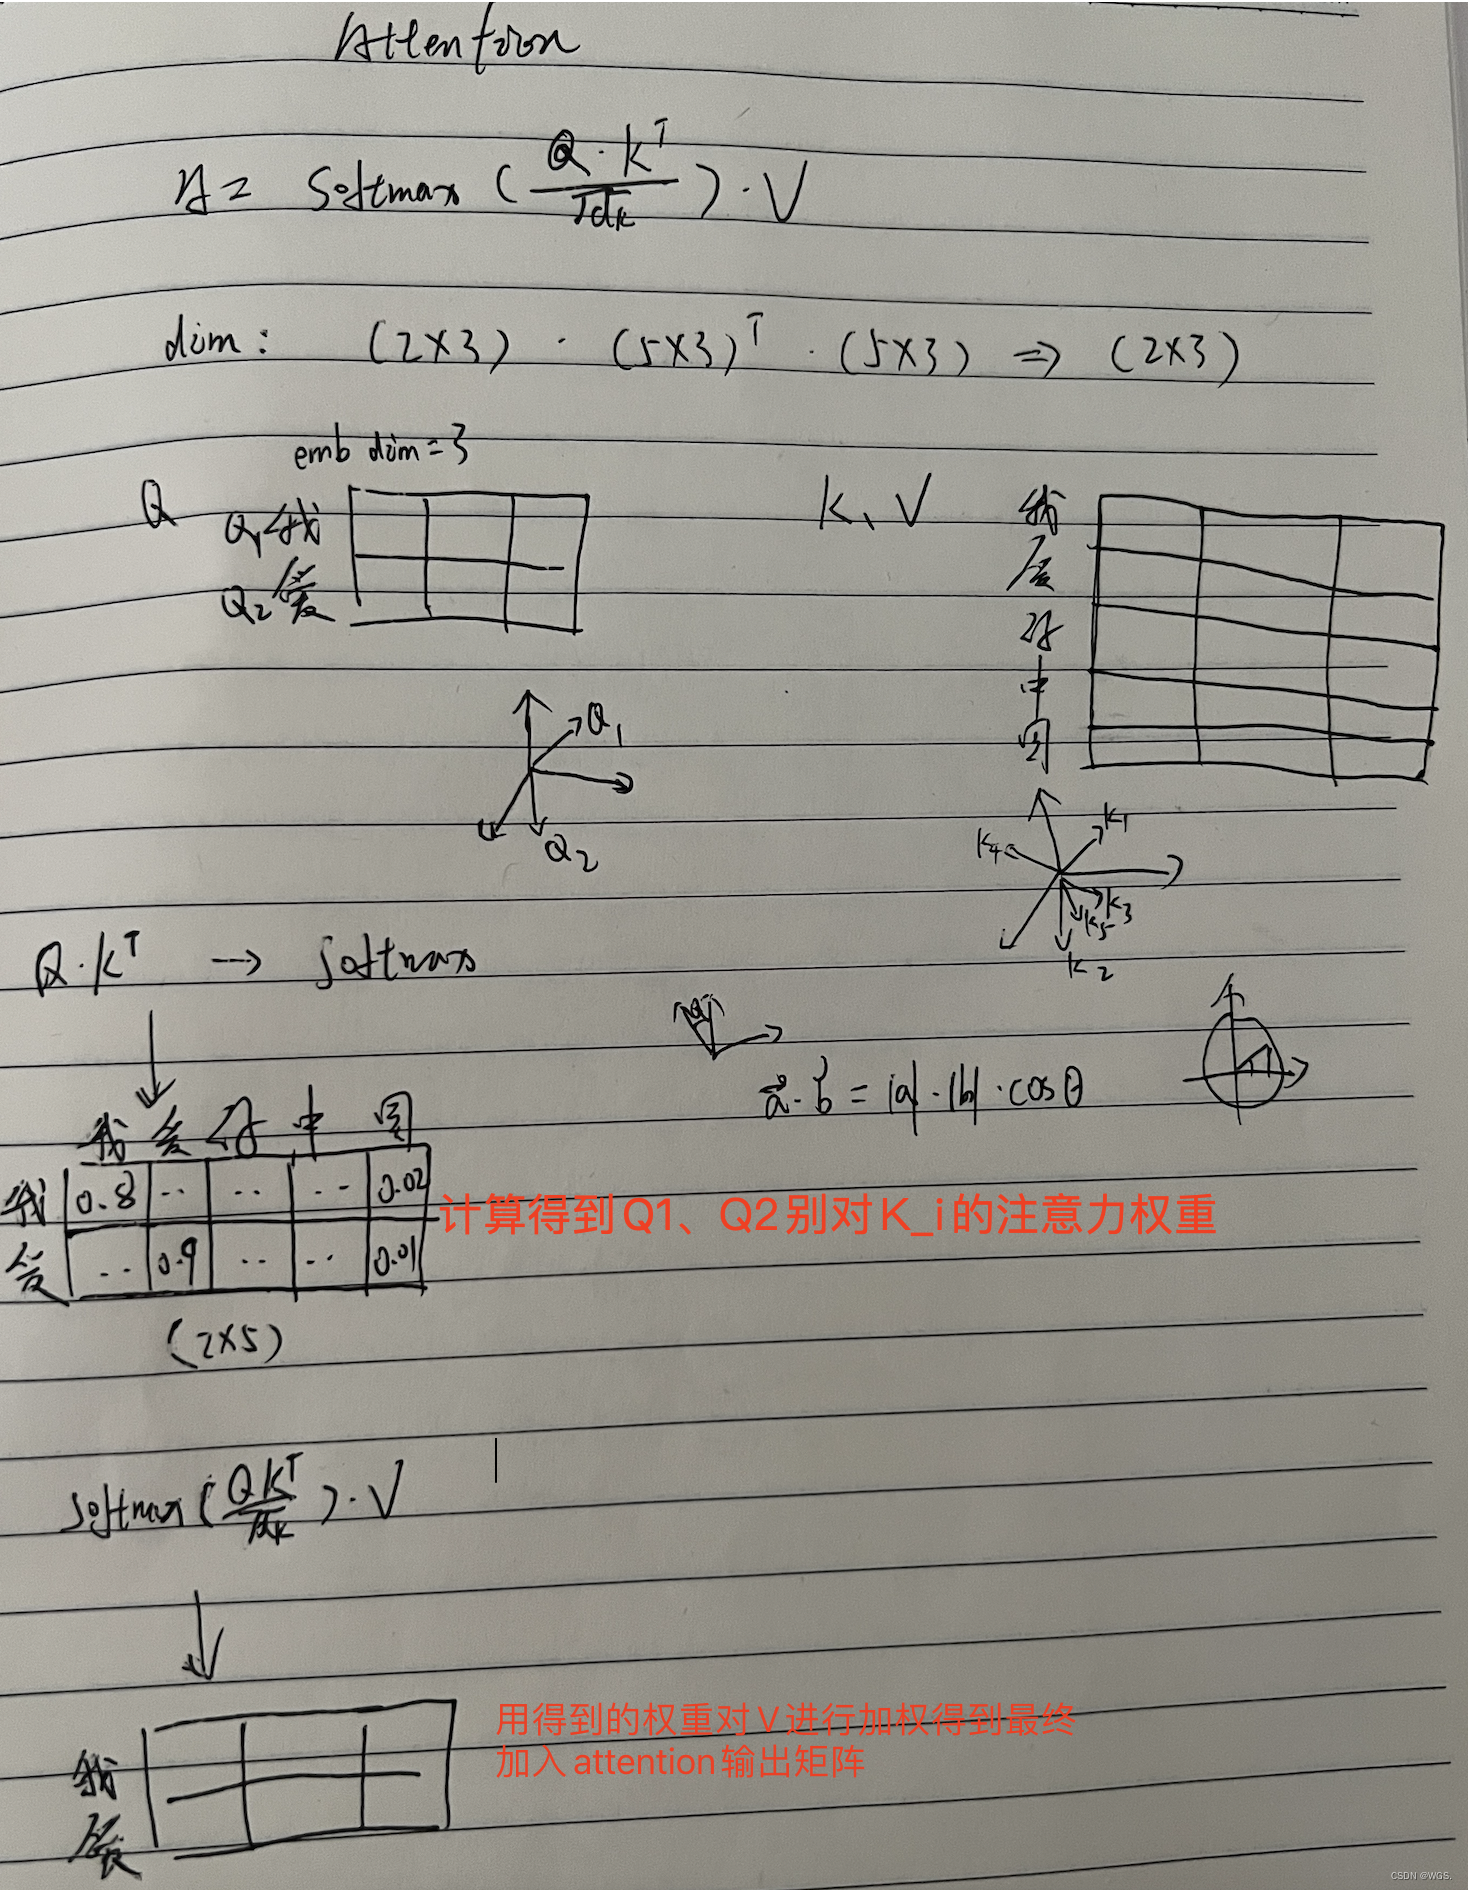 Attention
A = Softmax ( Q · K^T / √dk ) · V
dim : (2×3) · (5×3)^T · (5×3) ⇒ (2×3)
emb dim = 3
Q
Q1 我
Q2 爱
K、V
我
爱
你
中
国
Q1
Q2
K1
K4
K3
K5
K2
Q·K^T → softmax
a · b = |a| · |b| · cosθ
我 爱 你 中 国
我 0.8 .. .. .. 0.02
爱 .. 0.9 .. .. 0.01
计算得到Q1、Q2别对K_i的注意力权重
(2×5)
softmax ( QK^T / √dk ) · V
用得到的权重对V进行加权得到最终
加入attention输出矩阵
我
爱
CSDN @WGS.